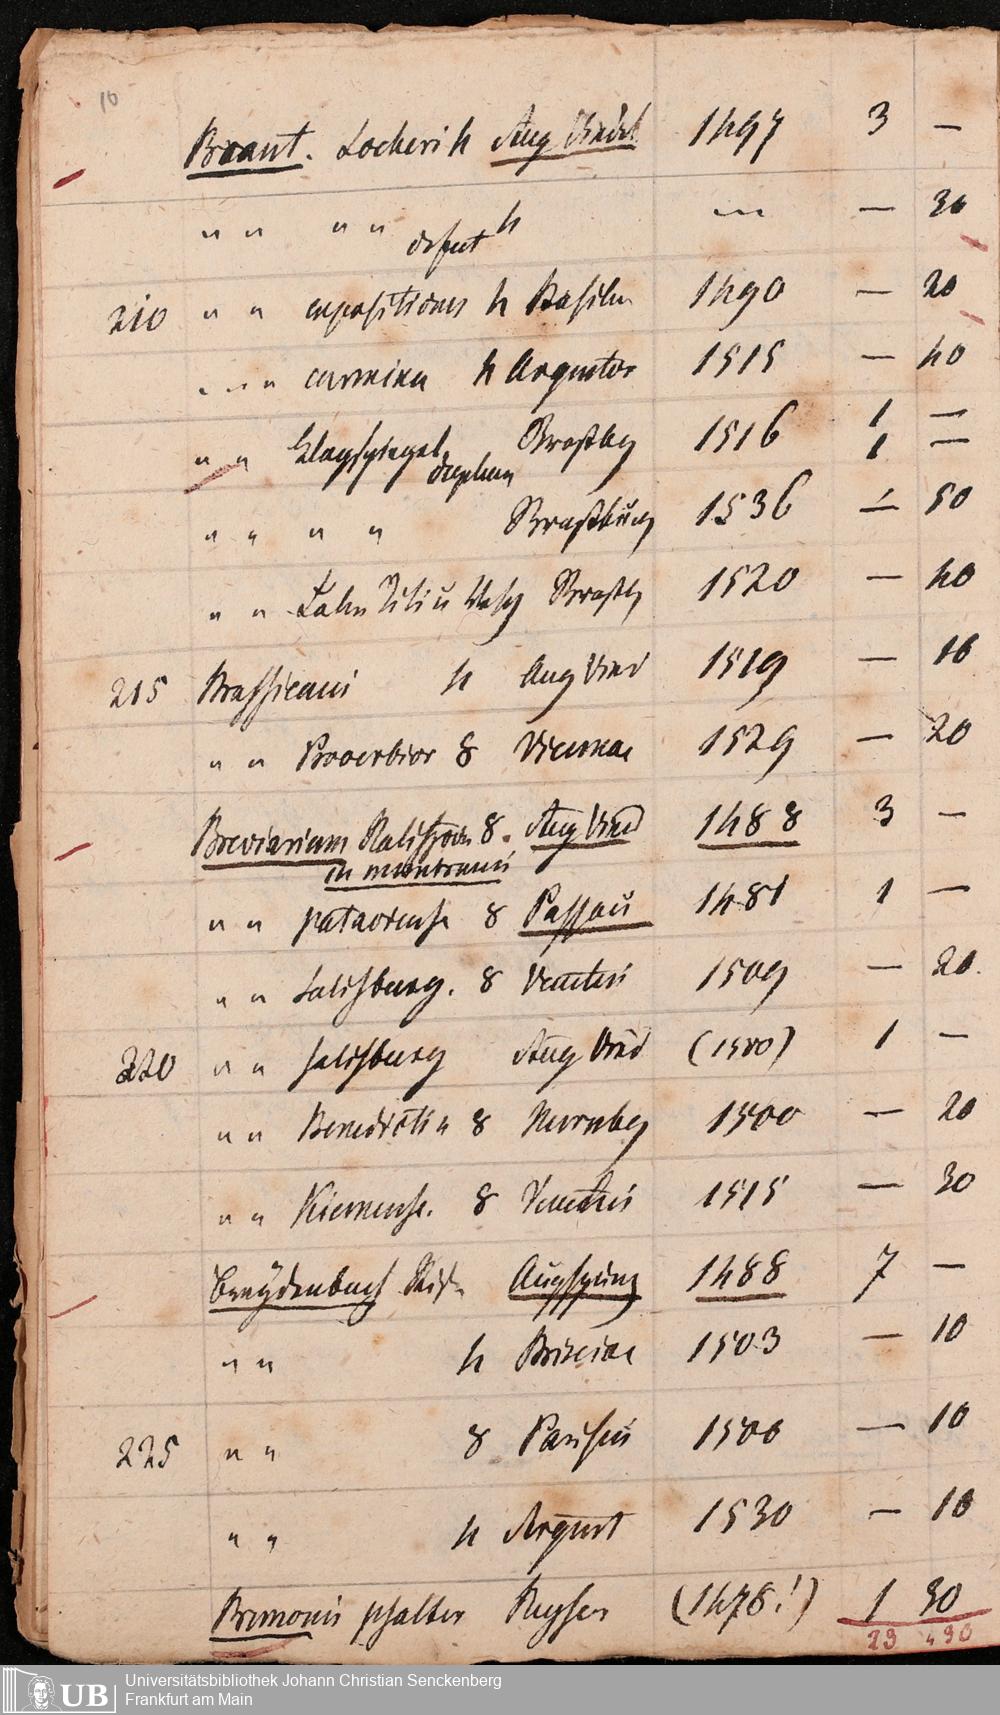 10
Braant. Locheri 4 Aug Vindel 1497 3 —
" " " " defect 4 — — 30
210 " " expositiones 4 Basilee 1490 — 20
" " carmina 4 Argentor 1515 — 40
" " Klagspiegel Strastbg 1516 1 —
duplum 1 —
" " " " Strastburg 1536 — 50
" " Strastbg 1520 — 40
215 Brassicani 4 Aug Vind 1519 — 16
" " Proverbior 8 Viennae 1529 — 20
Breviarium Ratisbon 8. Aug Vind 1488 3 —
in membranis
" " pataviense 8 Passau 1481 1 —
" " Salisburg. 8 Venetiis 1509 — 20.
220 " " Salisburg Aug Vind (1500) 1 —
" " Benedictin 8 Nurnbg 1500 — 20
" " Kiemense. 8 Venetiis 1515 — 30
Breydenbach Reis Augspurg 1488 7 —
" " 4 Brixiae 1503 — 10
225 " " 8 Parisiis 1500 — 10
" " 4 Argent 1530 — 10
Brunonis psalter Reyser (1478!) 1 30
23 490
Universitätsbibliothek Johann Christian Senckenberg
UB Frankfurt am Main